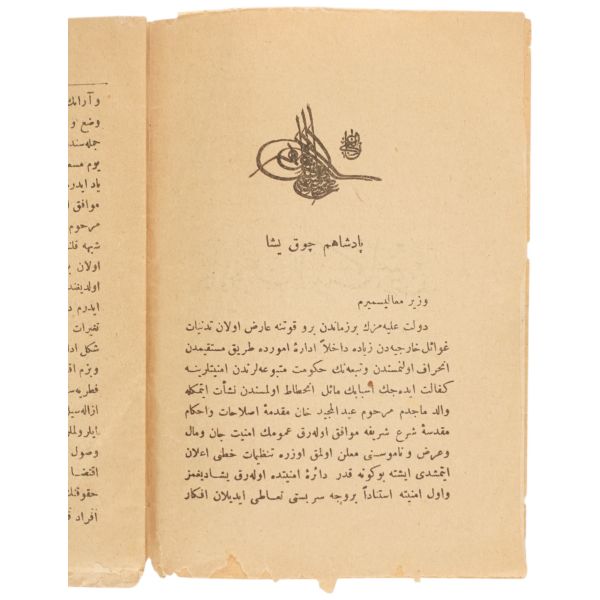 پادشاهم چوق یشا
وزیر معالیسمیرم
دولت علیه‌مزك برزماندن برو قوتنه عارض اولان تدنیات
غوائل خارجیه‌دن زیاده داخلاً ادارهٔ اموره طریق مستقیمدن
انحراف اولنمسندن وتبعه‌نك حکومت متبوعه‌لرندن امنیتلرینه
کفالت ایده‌جك اسبابك مائل انحطاط اولمسندن نشأت ایتمکله
والد ماجدم مرحوم عبد المجید خان مقدمهٔ اصلاحات واحکام
مقدسهٔ شرع شریفه موافق اوله‌رق عمومك امنیت جان ومال
وعرض وناموسنی معلن اولمق اوزره تنظیمات خطی اعلان
ایتمشدی ایشته بوکونه قدر دائرهٔ امنیتده اوله‌رق یشادیغمز
واول امنیته استناداً بروجه سربستی تعاطی ایدیلان افکار
وآرانك
وضع و
جمله‌سند
یوم مسع
یاد ایدر
موافق ا
مرحوم
شبهه قلن
اولان ب
اولدیغند
ایدرم د
تغیرات
شکل ادا
وبزم اق
فطریه‌س
ازاله‌سیل
ایلروملر
وصول
اقتضا
حقوقنك
افراد ف